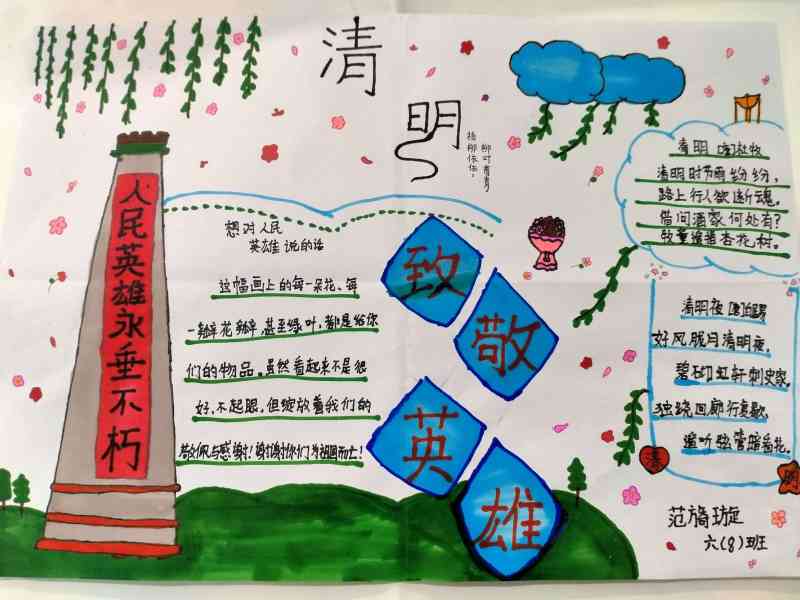 清
明
杨柳依依。
人民英雄永垂不朽
想对人民
英雄说的话
这幅画上的每一朵花、每
一瓣花瓣甚至绿叶,都是给你
们的物品。虽然看起来不是很
好,不起眼,但绽放着我们的
敬佩与感谢!谢谢你们为祖国而亡!
致
敬
英
雄
清明 [唐]杜牧
清明时节雨纷纷,
路上行人欲断魂。
借问酒家何处有?
牧童遥指杏花村。
清明夜 [唐]白居易
好风胧月清明夜,
碧砌红轩刺史家。
独绕回廊行复歇,
遥听弦管暗看花。
清
明
范旖璇
六(8)班